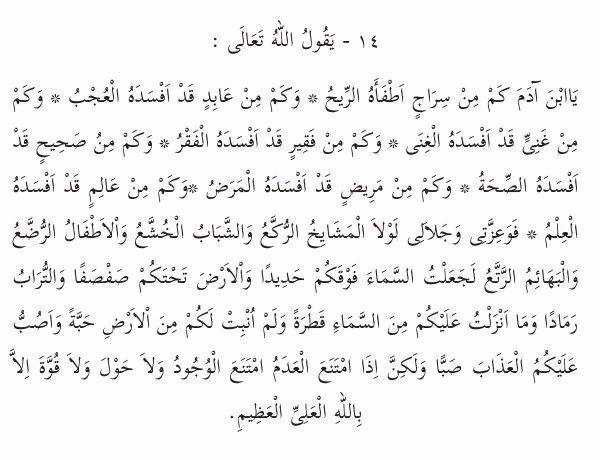 ١٤ - يَقُولُ اللّٰهُ تَعَالَى :
يَاابْنَ آدَمَ كَمْ مِنْ سِرَاجٍ اَطْفَأَهُ الرِّيحُ * وَكَمْ مِنْ عَابِدٍ قَدْ اَفْسَدَهُ الْعُجْبُ * وَكَمْ
مِنْ غَنِىٍّ قَدْ اَفْسَدَهُ الْغِنَى * وَكَمْ مِنْ فَقِيرٍ قَدْ اَفْسَدَهُ الْفَقْرُ * وَكَمْ مِنُ صَحِيحٍ قَدْ
اَفْسَدَهُ الصِّحَةُ * وَكَمْ مِنْ مَرِيضٍ قَدْ اَفْسَدَهُ الْمَرَضُ *وَكَمْ مِنْ عَالِمٍ قَدْ اَفْسَدَهُ
الْعِلْمُ * فَوَعِزَّتِى وَجَلاَلِى لَوْلاَ الْمَشَايِخُ الرُّكَّعُ وَالشَّبَابُ الْخُشَّعُ وَاْلاَطْفَالُ الرُّضَّعُ
وَالْبَهَائِمُ الرَّتَّعُ لَجَعَلْتُ السَّمَاءَ فَوْقَكُمْ حَدِيدًا وَاْلاَرْضَ تَحْتَكُمْ صَفْصَفًا وَالتُّرَابُ
رَمَادًا وَمَا اَنْزَلْتُ عَلَيْكُمْ مِنَ السَّمَاءِ قَطْرَةً وَلَمْ اُنْبِتْ لَكُمْ مِنَ اْلاَرْضِ حَبَّةً وَاَصُبُّ
عَلَيْكُمُ الْعَذَابَ صَبًّا وَلَكِنَّ اِذَا امْتَنَعَ الْعَدَمُ امْتَنَعَ الْوُجُودُ وَلاَ حَوْلَ وَلاَ قُوَّةَ اِلاَّ
بِاللّٰهِ الْعَلِىِّ الْعَظِيمِ.